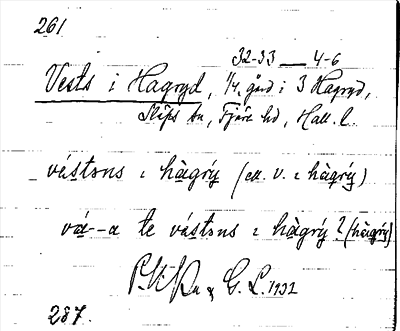 261
32-33 — 4-6
Vests i Hagryd, 1/4 gård i 3 Hagryd,
Släps sn, Fjäre hd, Hall. l.
våstsns i hàgrý (el. v. i hàgrý)
vá--a te våstsns i hàgrý? (hàgrý)
& G. L. 1932
287.